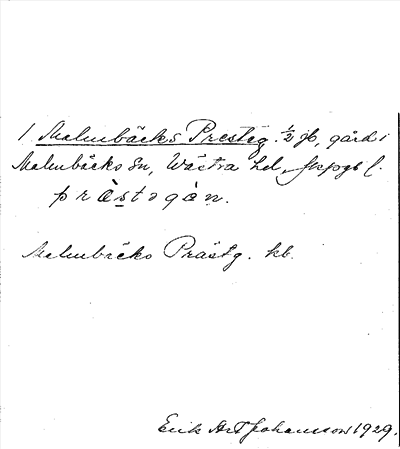 1 Malmbäcks Prestg. ½ gb, gård i
Malmbäcks Sn, Västra hd, Jkpgs l.
prästogàn.
Malmbäcks Prästg. kb.
Erik Art Johansson 1929.